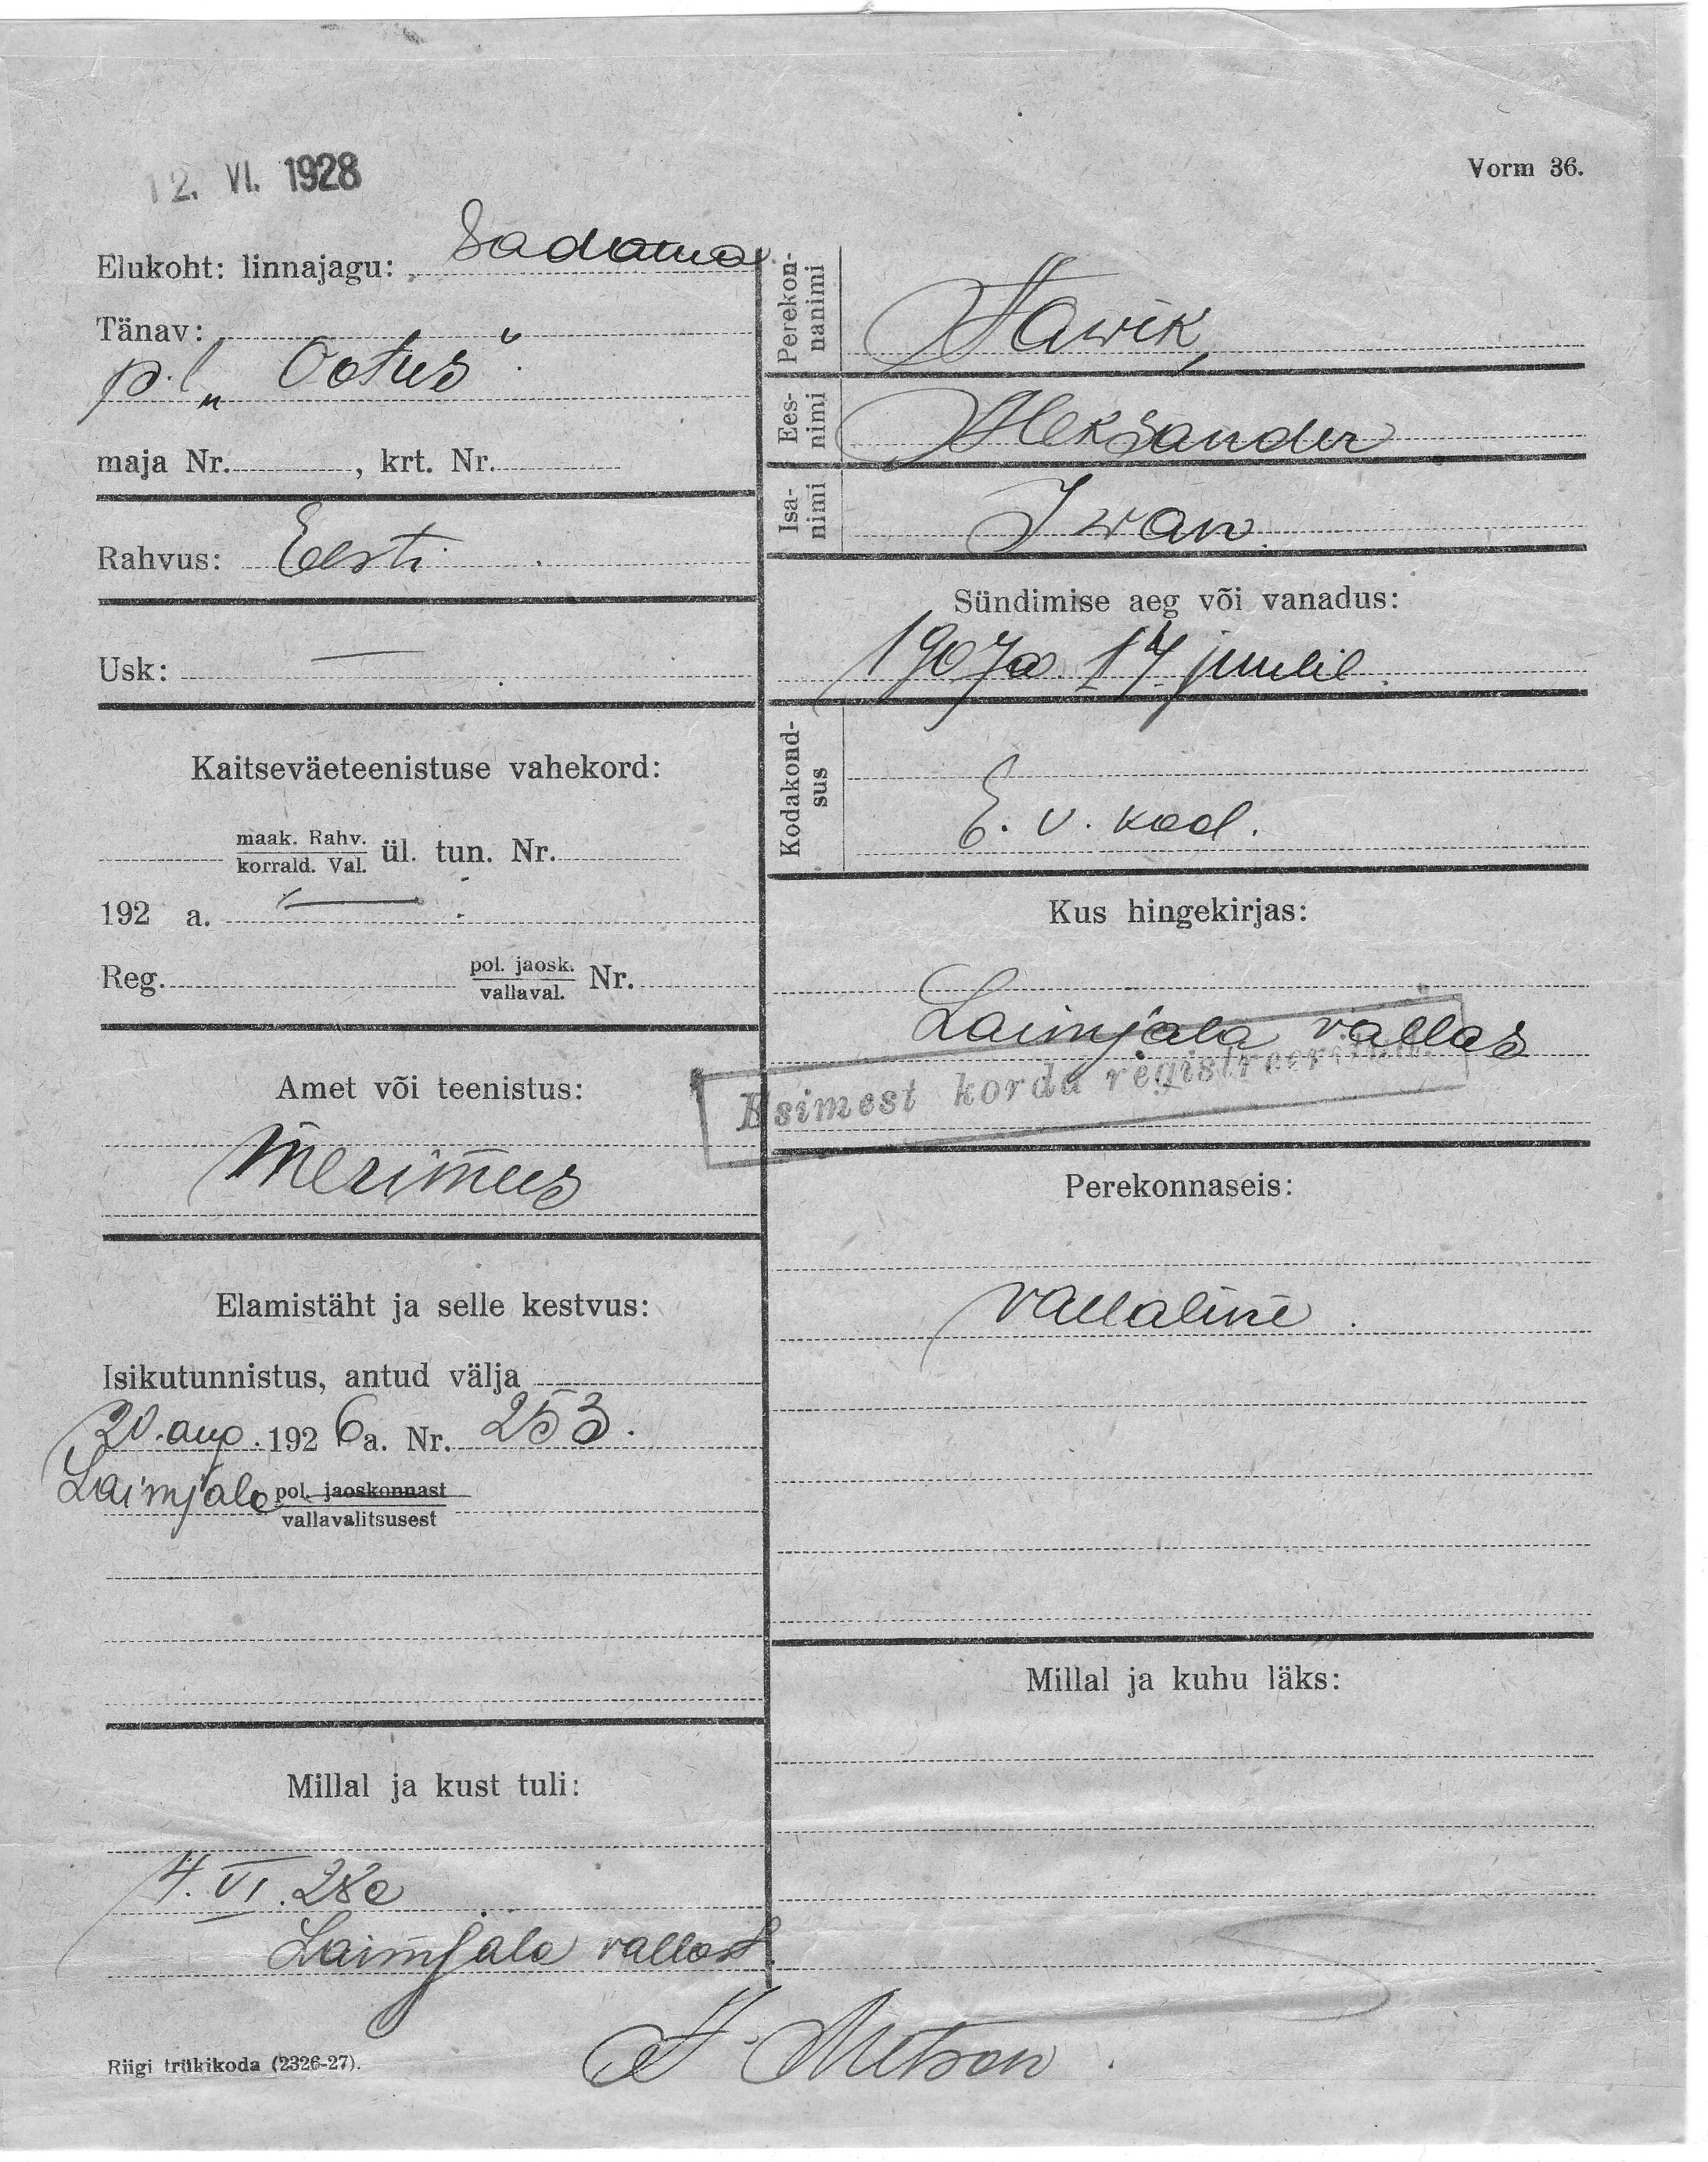 12. VI. 1928
Vorm 36.
Elukoht: linnajagu: Sadama
Tänav:
p.l „Ootus“.
maja Nr. , krt. Nr.
Rahvus: Eesti
Usk: —
Kaitseväeteenistuse vahekord:
maak. Rahv.
korrald. Val. ül. tun. Nr.
192 a. —
Reg. pol. jaosk.
vallaval. Nr.
Amet või teenistus:
Merimees
Elamistäht ja selle kestvus:
Isikutunnistus, antud välja
20. aug. 1926 a. Nr. 253.
Laimjala pol. jaoskonnast
vallavalitsusest
Millal ja kust tuli:
4. VI. 28a
Laimjala vallast.
Riigi trükikoda (2326-27).
Perekon-
nanimi
Hawik,
Ees-
nimi
Aleksander
Isa-
nimi
Iwan.
Sündimise aeg või vanadus:
1907a. 17. juulil.
Kodakond-
sus
E. v. kod.
Kus hingekirjas:
Laimjala vallas
Esimest korda registreeritud.
Perekonnaseis:
vallaline.
Millal ja kuhu läks: